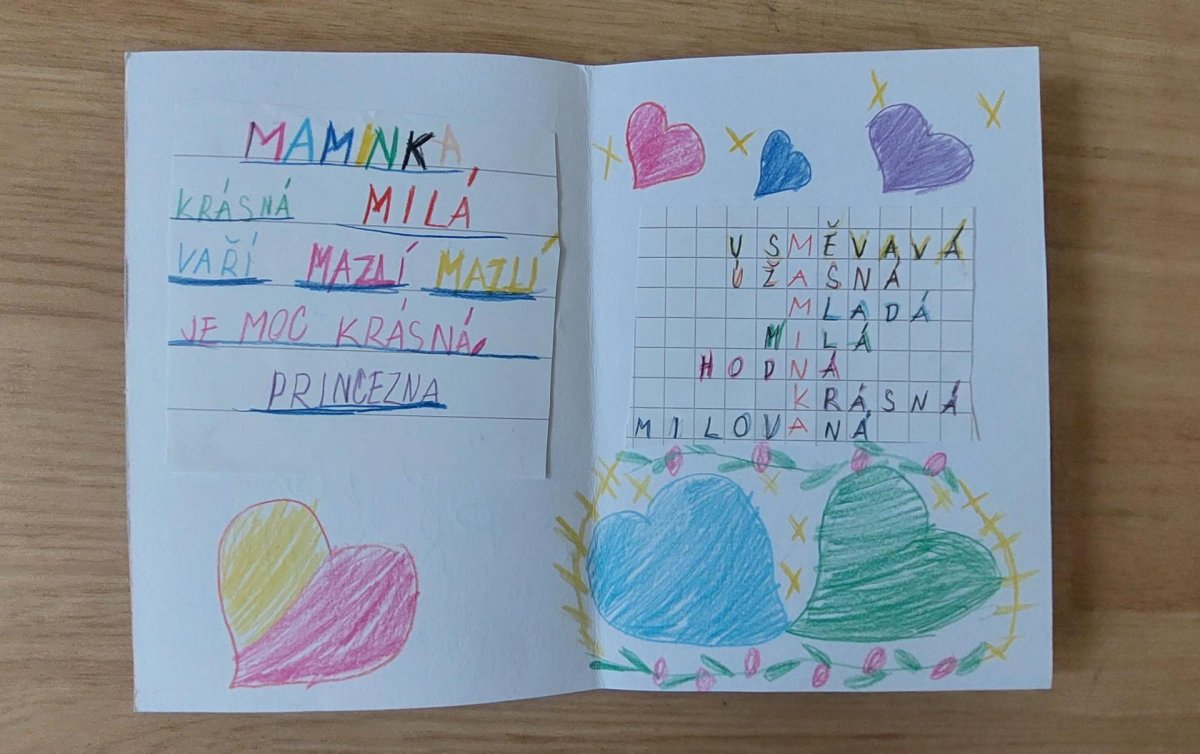 MAMINKA
KRÁSNÁ MILÁ
VAŘÍ MAZLÍ MAZLÍ
JE MOC KRÁSNÁ
PRINCEZNA
USMĚVAVÁ
ÚŽASNÁ
MLADÁ
MILÁ
HODNÁ
KRÁSNÁ
MILOVANÁ